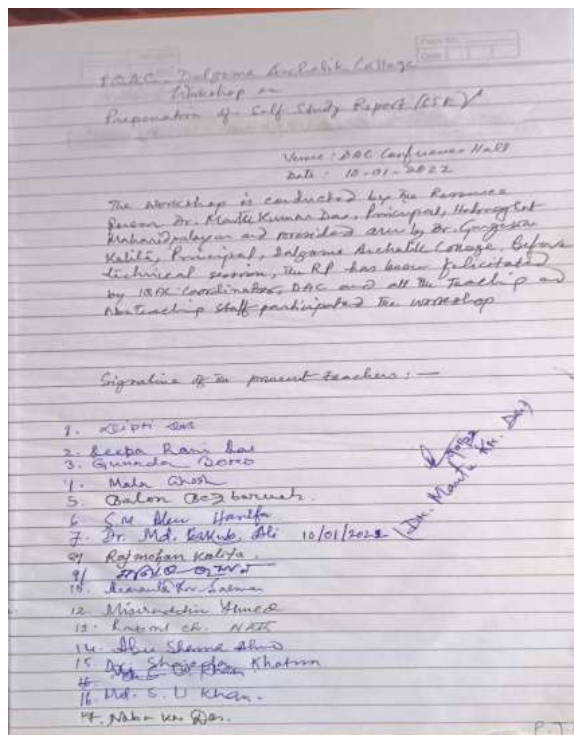 IQAC, Dalgoma Anchalik College
Workshop on
Preparation of Self Study Report (SSR)
Venue : DAC Conference Hall
Date : 10-01-2022
The workshop is conducted by the Resource
Person Dr. Manta Kumar Das, Principal,
Mahavidyalaya and presided over by Dr.
Kalita, Principal, Dalgoma Anchalik College, Before
technical session, the RP has been felicitated
by IQAC Coordinator, DAC and all the Teaching and
staff participated the workshop
Signature of the present teachers : —
1. Dipti Das
2. Deepa Rani Das
3. Gunada Boro
4. Mala Ghosh
5. Balon Bezbaruah.
6. S.M. Hanifa
7. Dr. Md. Ali 10/01/2022
8/ Rajmohan Kalita.
9/
10.
12. Ahmed
13. ch. Nath
14. Abu
15 Khatun
16. Md. S. U Khan.
17. Naba Kr Das.
(Dr. Manta Kr. Das)
P.T.